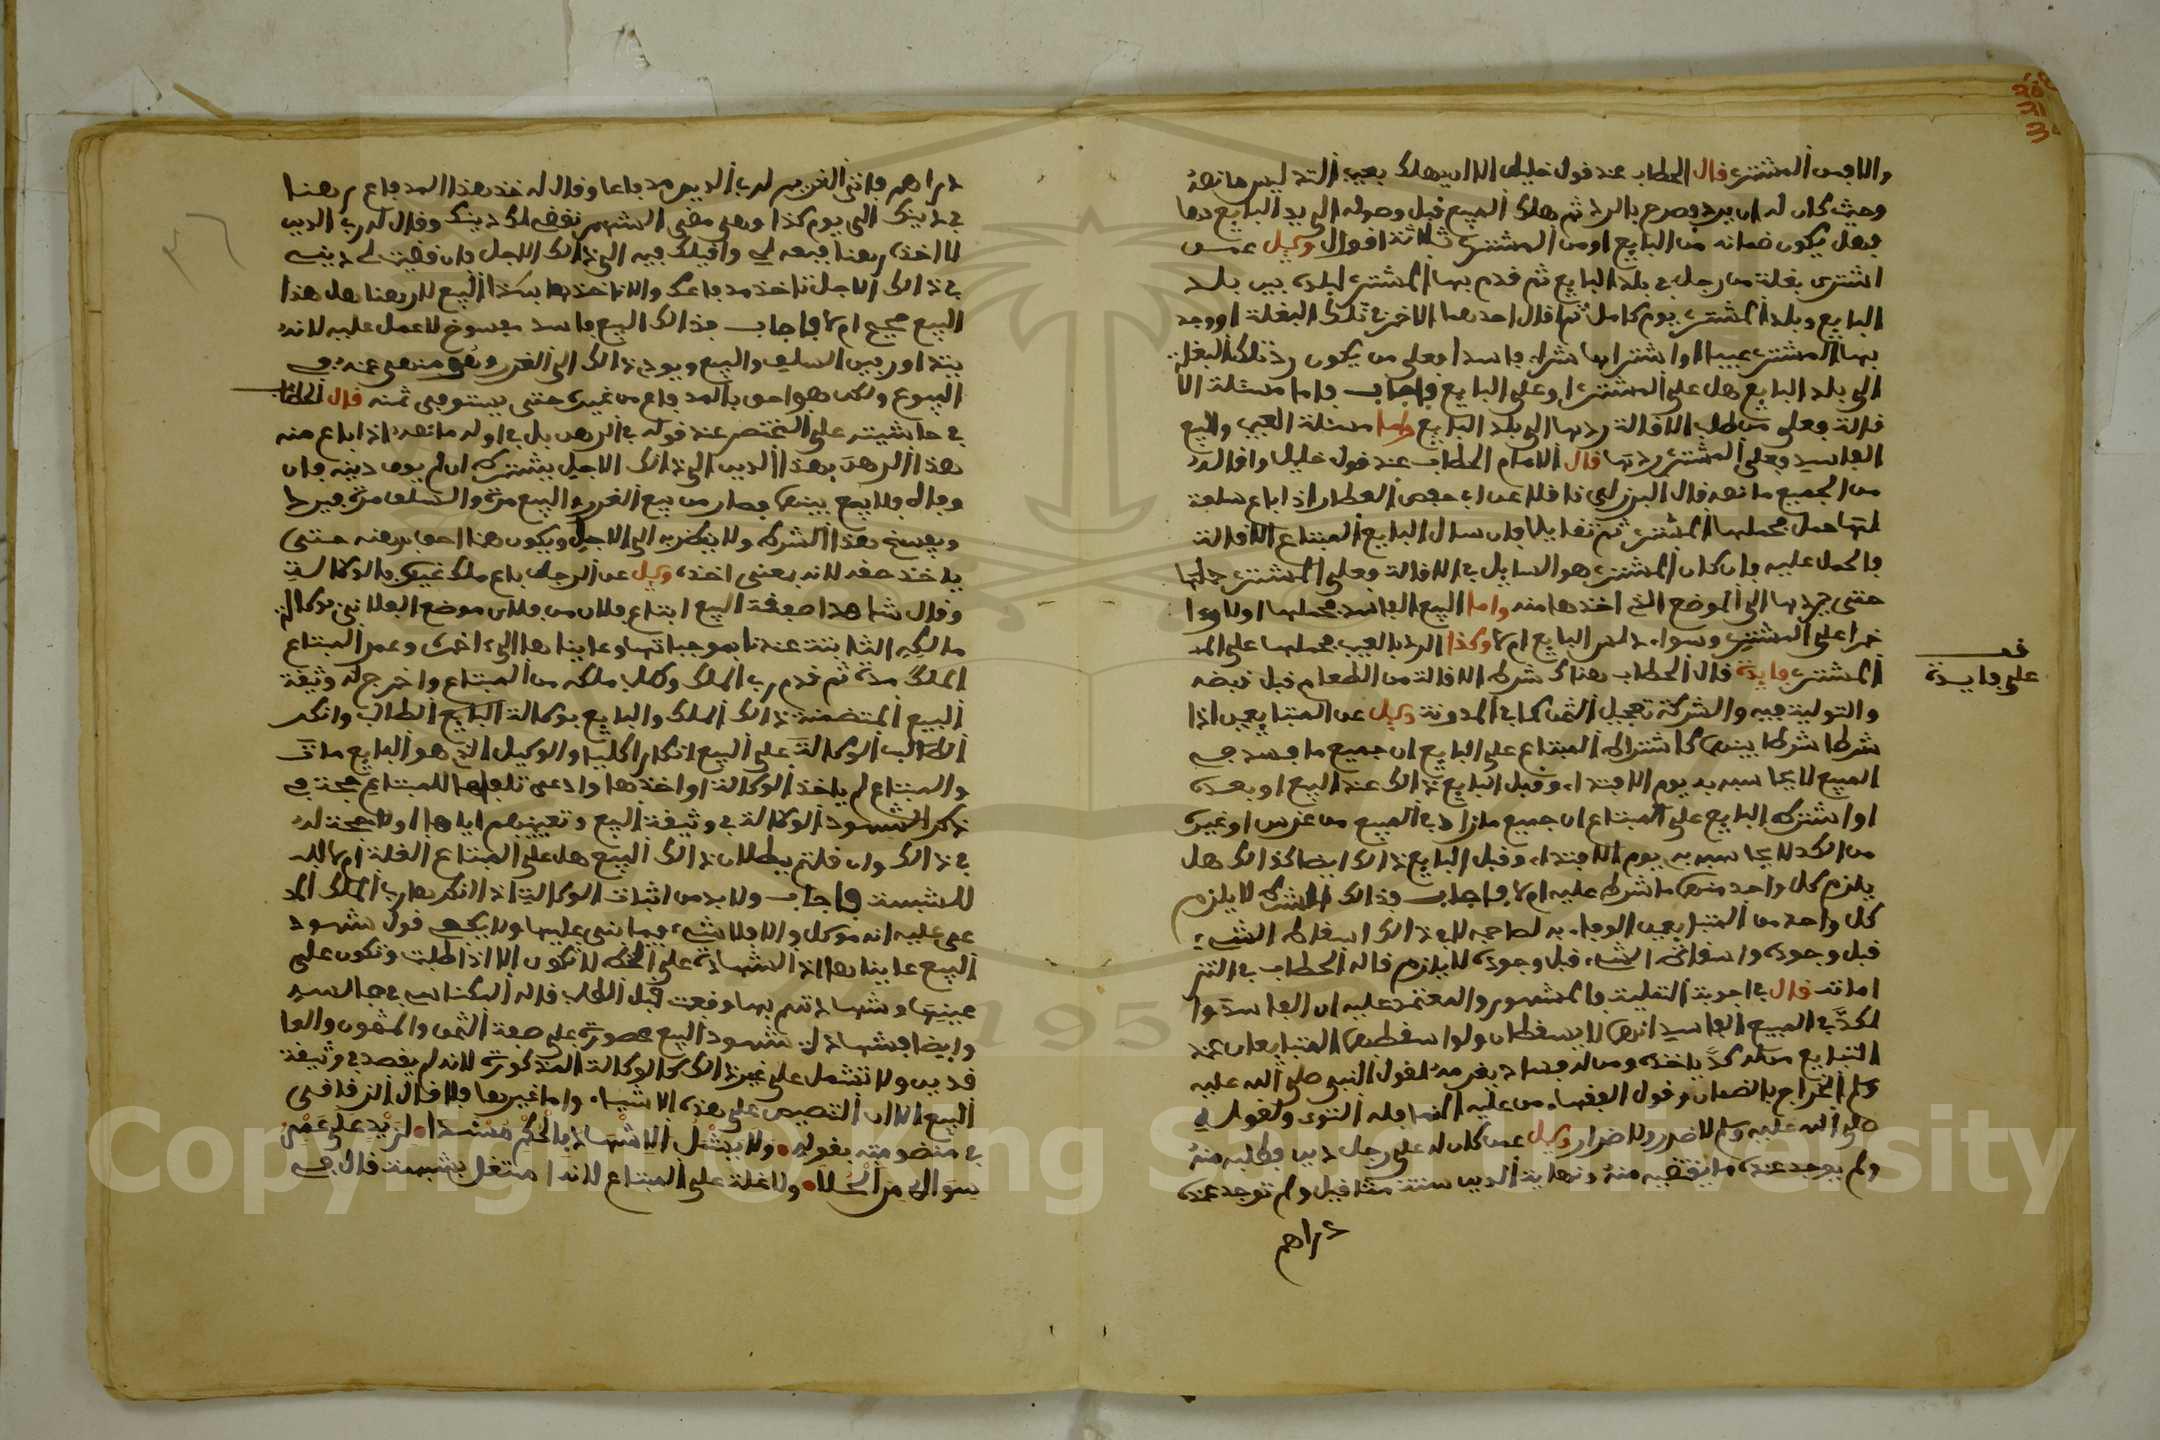 والا فمن المشتري قال الحطاب عند قول خليل الا ان يهلك بعيب التدليس ما نصه
وحيث كان له ان يرد وصرح بالرد ثم هلك المبيع قبل وصوله الى يد البايع
فهل يكون ضمانه من البايع او من المشتري ثلاثة اقوال وسيل عمن
اشترى بغلة من رجل في بلد البايع ثم قدم بها المشتري لبلده بين بلد
البايع وبلد المشتري يوم كامل ثم اقال احدهما الاخر في تلك البغلة او وجد
بها المشتري عيبا او اشتراها شراء فاسدا فعلى من يكون رد تلك البغلة
الى بلد البايع هل على المشتري او على البايع فاجاب فاما مسئلة الا
قالة فعلى من طلب الاقالة ردها الى بلد البايع واما مسئلة العيب والبيع
الفاسد فعلى المشتري ردها قال الامام الحطاب عند قول خليل واقالة
من الجميع ما نصه قال البرزلي ناقلا عن ابي حفص العطار اذا باع سلعة
لها حمل فحملها المشتري ثم تقايلا فان سال البايع المبتاع الاقالة
فالحمل عليه وان كان المشتري هو السايل في الاقالة فعلى المشتري حملها
حتى يردها الى الموضع الذي اخذها منه واما البيع الفاسد فحملها اولا
على المشتري وسواء دلس البايع ام لا وكذا الرد بالعيب فحملها على
المشتري فايدة قال الحطاب هناك شرط الاقالة من الطعام قبل قبضه
والتولية فيه والشركة تعجيل الثمن كما في المدونة وسيل عن المتبايعين اذا
شرطا شرطا بينهما كاشتراط المبتاع على البايع ان جميع ما فسد في
المبيع لا يحاسبه به يوم الافتداء وقبل البايع ذالك عند البيع او بعده
او اشترط البايع على المبتاع ان جميع ما زاد في المبيع من غرس او غيره
من الكد لا يحاسبه به يوم الافتداء وقبل البايع ذالك ايضا كذالك هل
يلزم كل واحد منهما ما شرط عليه ام لا فاجاب فذالك الشرط لا يلزم
كل واحد من المتبايعين الوفاء به لصاحبه لان ذالك اسقاط الشيء
قبل وجوده واسقاط الشيء قبل وجوده لا يلزم قاله الحطاب في التز
اماته قال في اجوبة التقليت والمشهور والمعتمد عليه ان الفاسد وا
لكد في المبيع الفاسد انهما لا يسقطان ولو اسقطهما المتبايعان عند
التبايع من له كد ياخذه ومن له فساد يغرمه لقول النبي صلى الله عليه
وسلم الخراج بالضمان وقول الفقهاء من عليه النماء فله التوى ولقوله
صلى الله عليه وسلم لا ضرر ولا ضرار وسيل عمن كان له على رجل دين فطلبه منه
ولم يوجد عنده ما يقضيه منه ونهاية الدين ستة مثاقيل ولم توجد عنده
دراهم
قف
على فايدة
دراهم فاتى الغريم لرب الدين مدفاعا وقال له خذ هذا المدفاع رهنا
في دينك الى يوم كذا ومتى مضى الشهر نقضي لك دينك وقال له رب الدين
لا اخذه رهنا فبعه لي واقيلك فيه الى ذالك الاجل فان قضيت لي ديني
في ذالك الاجل تاخذ مدفاعك والا ناخذها بكذا البيع لا رهنا هل هذا
البيع صحيح ام لا فاجاب فذالك البيع فاسد مفسوخ لا عمل عليه لانه
يتداور بين السلف والبيع ويودي ذالك الى الغرر وهو منهي عنه في
البيوع ولكن هو احق بالمدفاع من غيره حتى يستوفي ثمنه قال الحطاب
في حاشيته على المختصر عند قوله في الرهن بل في اوله ما نصه اذا باع منه
هذا الرهن بهذا الدين الى ذالك الاجل بشرط ان لم يوف دينه فان
وفاه فلا بيع بينهما فصار من بيع الغرر والبيع مرة والسلف مرة فيرد
ويفسخ هذا الشرط ولا ينظر به الى الاجل ويكون هذا احق برهنه حتى
ياخذ حقه لانه يعني اخذه وسيل عن الرجل باع ملك غيره بالوكالة
وقال شاهدا صفقة البيع ابتاع فلان من فلان موضع الفلاني بوكالة
مالكه الثابتة عندنا بموجباتها وعايناها الى اخره وعمر المبتاع
الملك مدة ثم قدم رب الملك وطلب ملكه من المبتاع واخرج له وثيقة
البيع المتضمنة ذالك الملك والبايع بوكالة البايع الطالب وانكر
الطالب الوكالة على البيع انكارا كليا والوكيل الذي هو البايع مات
والمبتاع لم ياخذ الوكالة او اخذها وادعى تلفها هل للمبتاع حجة في
ذكر الشهود الوكالة في وثيقة البيع وتعيينهم اياها او لا حجة له
في ذالك وان قلتم ببطلان ذالك البيع هل على المبتاع الغلة ام لا
للشبهة فاجاب ولا بد من اثبات الوكالة اذ انكرها رب الملك المد
عى عليه انه موكل والا فلا شيء فيما بنى عليها ولا يكفي قول شهود
البيع عايناها اذ الشهادة على الخط لا تكون الا اذا طلبت وتكون على
عينها وشهادتهم بها وقعت قبل الطلب قاله المكناسي في مجالسه
وايضا فشهادة شهود البيع محصورة على صفة الثمن والمثمون والعا
قدين ولا تشمل على غير ذالك كالوكالة المذكورة لانه لم يقصد في وثيقة
البيع الا ان التنصيص على هذه الاشياء واما غيرها فلا قال الزقاق في
في منظومته بقوله ولا يشمل الاشهاد بالحكم مسندا لزيد على عمرو
سوى الى من انجلا ولا غلة على المبتاع لانه مستغل بشبهة قال في